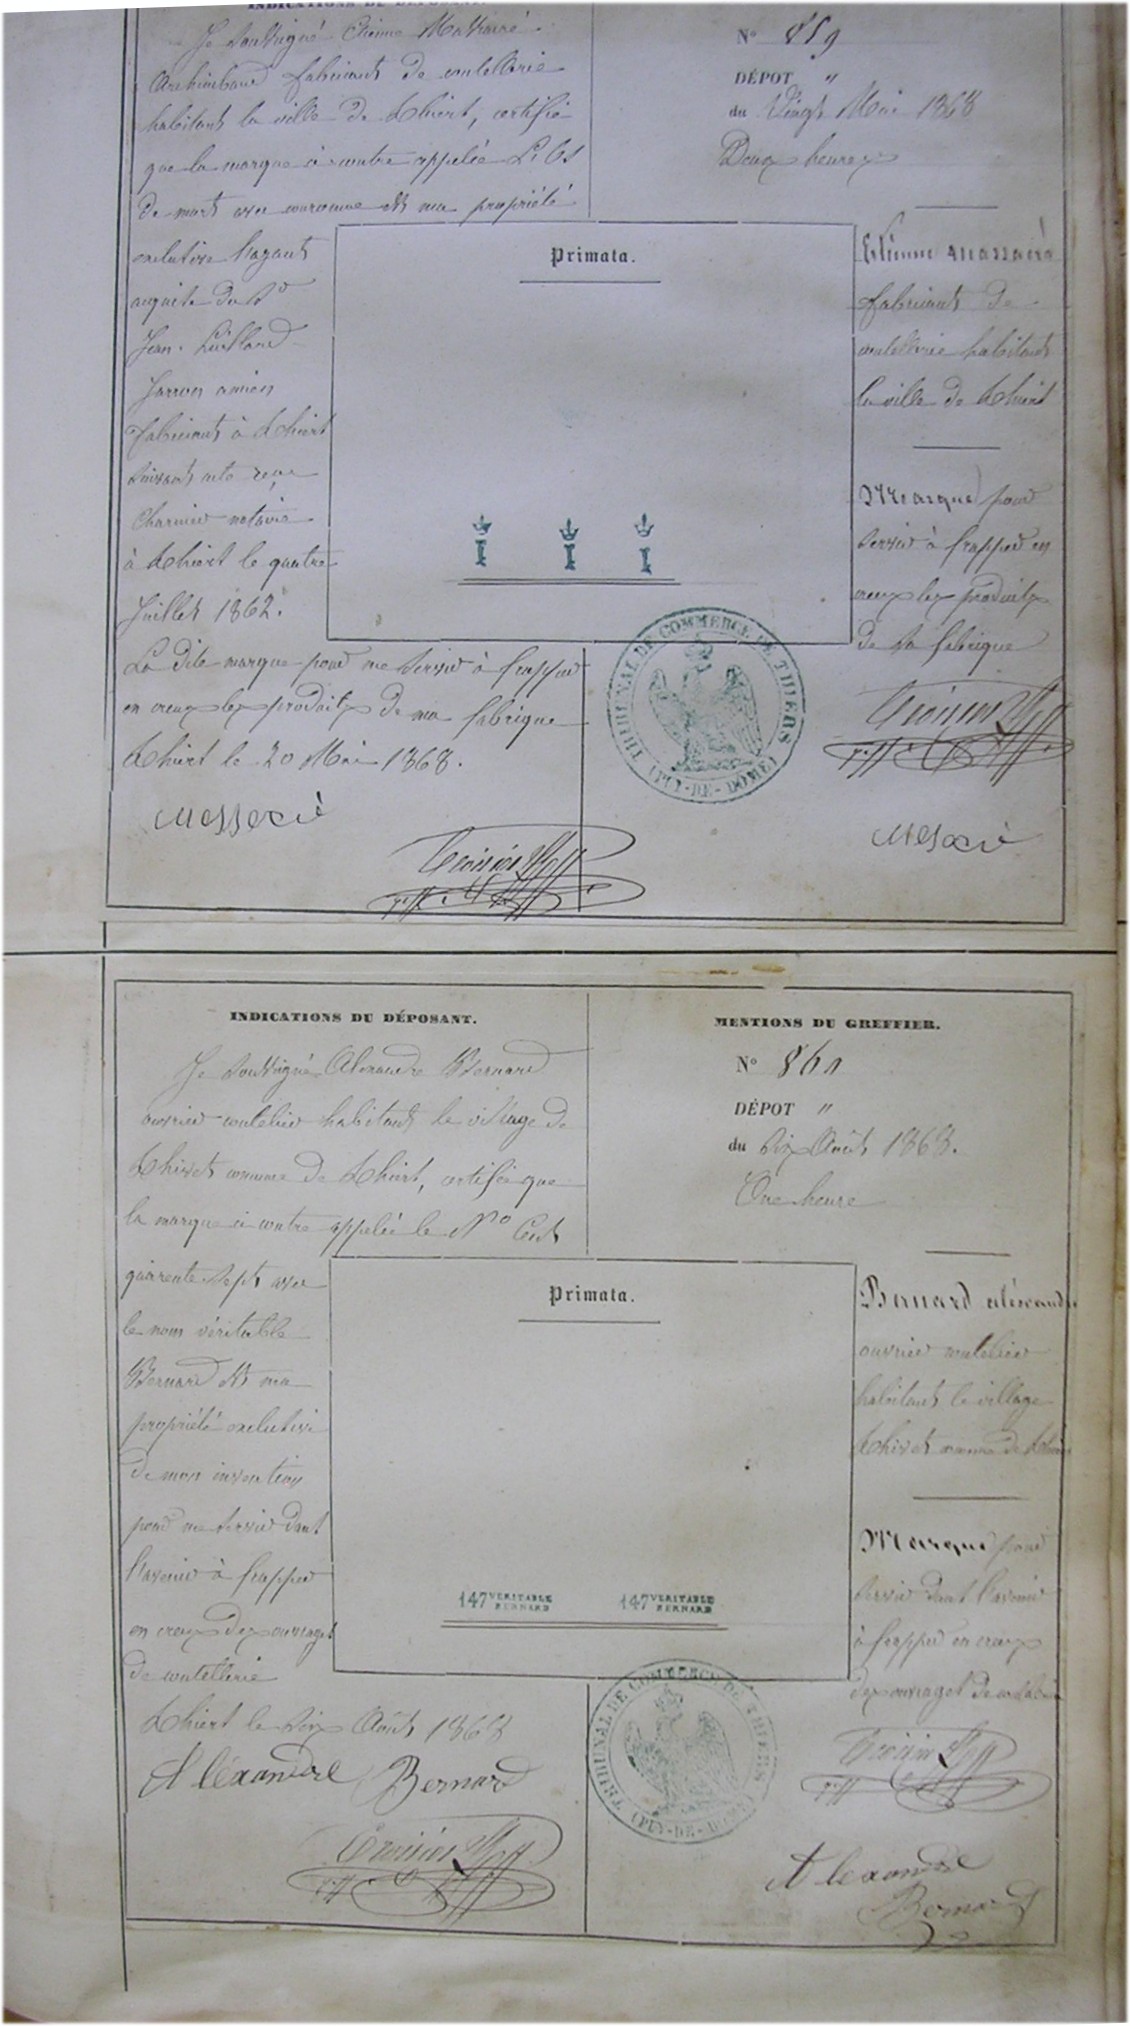 INDICATIONS DU DÉPOSANT.
Je soussigné Etienne Massacrié
Archimbaud fabricant de coutellerie
habitant la ville de Thiers, certifie
que la marque ci-contre appelée L'Os
de mort avec couronne est ma propriété
exclusive l'ayant
acquise du Sr
Jean
ancien
fabricant à Thiers
suivant acte reçu
notaire
à Thiers le quatre
Juillet 1862.
La dite marque pour me servir à frapper
en creux les produits de ma fabrique
Thiers le 20 Mai 1868.
N° 859
DÉPOT "
du Vingt Mai 1868
Deux heures
Primata.
Etienne
fabricant de
coutellerie habitant
la ville de Thiers
Marque pour
servir à frapper en
creux les produits
de sa fabrique
TRIBUNAL DE COMMERCE DE THIERS
(PUY-DE-DÔME)
INDICATIONS DU DÉPOSANT.
Je soussigné Alexandre Bernard
ouvrier coutelier habitant le village de
commune de Thiers, certifie que
la marque ci contre appelée le No Cent
quarente sept avec
le nom véritable
Bernard est ma
propriété exclusive
de mon invention
pour me servir dans
l'avenir à frapper
en creux des ouvrages
de coutellerie
Thiers le Six Août 1868
Aléxandre Bernard
MENTIONS DU GREFFIER.
N° 860
DÉPOT "
du Six Août 1868.
Une heure
Primata.
147 VERITABLE BERNARD 147 VERITABLE BERNARD
Bernard aléxandre
ouvrier coutelier
habitant le village
commune de Thiers
Marque pour
servir dans l'avenir
à frapper en creux
des ouvrages de coutellerie
TRIBUNAL DE COMMERCE DE THIERS
(PUY-DE-DÔME)
Alexandre
Bernard